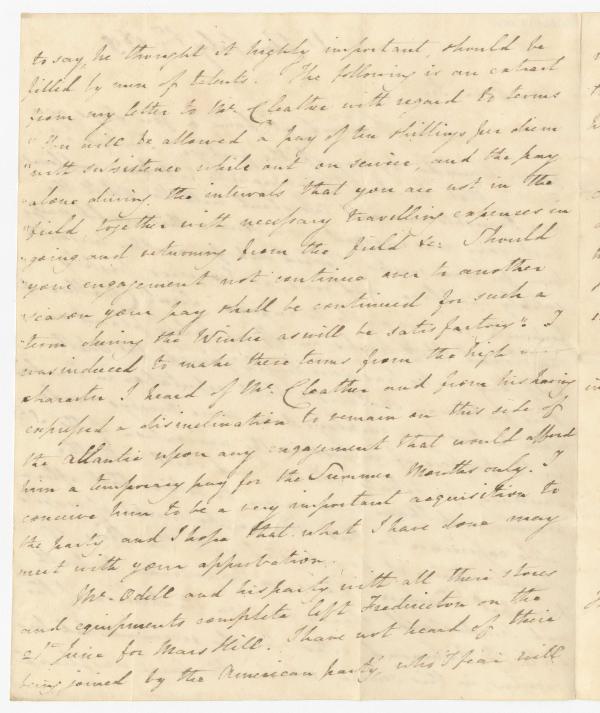 to say, he thought it highly important, should be
filled by men of talents. The following is an extract
from my letter to Mr. Cloather with regard to terms
"You will be allowed a pay of ten shillings per diem
"with subsistence while out on service, and the pay
"alone during the intervals that you are not in the
"field together with necessary travelling expences in
"going and returning from the field &c. Should
"your engagement not continue over to another
"season your pay shall be continued for such a
"term during the Winter as will be satisfactory". I
was induced to make these terms from the high
character I heard of Mr. Cloather and from his having
expressed a disinclination to remain on this side of
the atlantic upon any engagement that would afford
him a temporary pay for the Summer Months only. I
conceive him to be a very important acquisition to
the party and I hope that what I have done may
meet with your approbation.
Mr. Odell and his party with all their stores
and equipments complete left Fredericton on the
21st June for Mars Hill. I have not heard of their
being joined by the American party, who I fear will